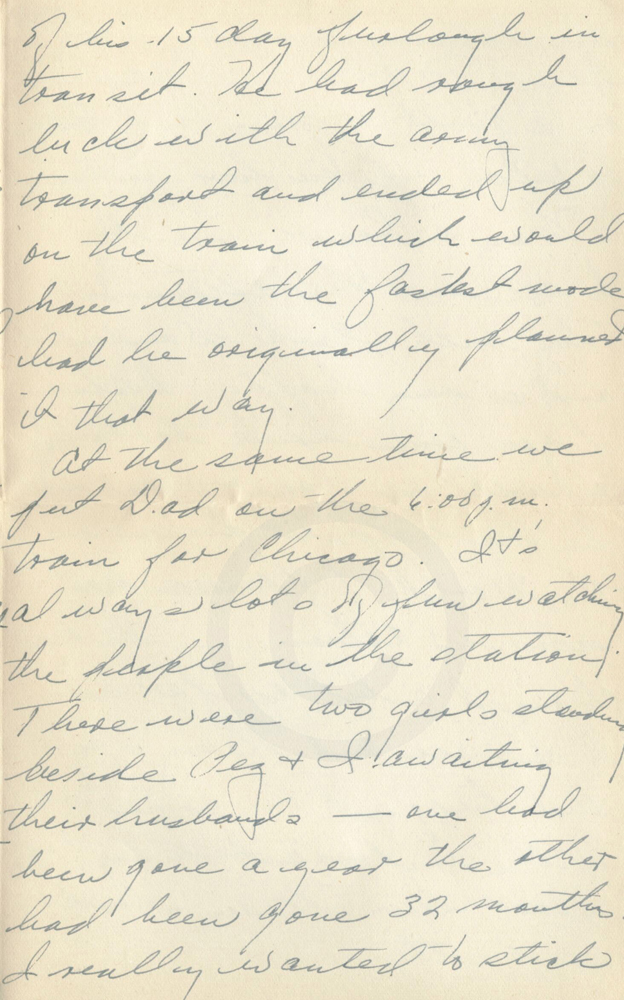 of his 15 day furlough in
transit. He had rough
luck with the army
transport and ended up
on the train which would
have been the fastest mode
had he originally planned
it that way.
At the same time we
put Dad on the 6:00 p.m.
train for Chicago. It's
always lots of fun watching
the people in the station.
There were two girls standing
beside Peg & I awaiting
their husbands — one had
been gone a year the other
had been gone 32 months.
I really wanted to stick